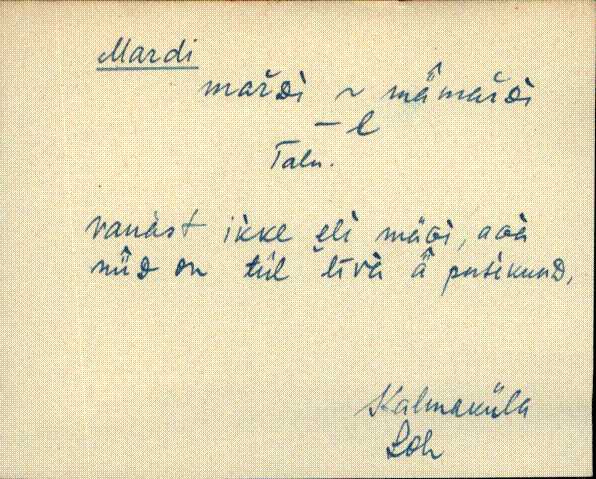 Mardi
mařᴅi ~ mä̂mařᴅi
– l
Talu.
vanast ikke eli mäɢi, aɢa
nüᴅ on tül livà ä̂ pusikunᴅ,
Kalmaküla
Loh